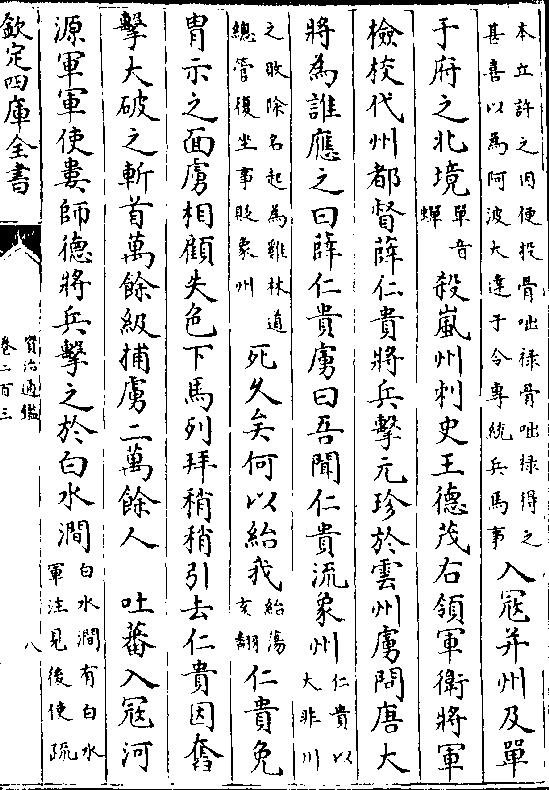 本立許之因使投骨咄禄骨咄禄得之
甚喜以為阿波大達于令專統兵馬事
入冦并州及單
于府之北境
單音
蟬
殺嵐州刺史王德茂右領軍衛將軍
檢校代州都督薛仁貴將兵擊元珍於雲州虜問唐大
將為誰應之曰薛仁貴虜曰吾聞仁貴流象州
仁貴以
大非川
之敗除名起為雞林道
總管復坐事貶象州
死久矣何以紿我
紿蕩
亥翻
仁貴免
胄示之面虜相顧失色下馬列拜稍稍引去仁貴因奮
擊大破之斬首萬餘級捕虜二萬餘人 吐蕃入冦河
源軍軍使婁師德將兵擊之於白水澗
白水澗有白水
軍注見後使疏
欽定四庫全書
資治通鑑
卷二百三
八